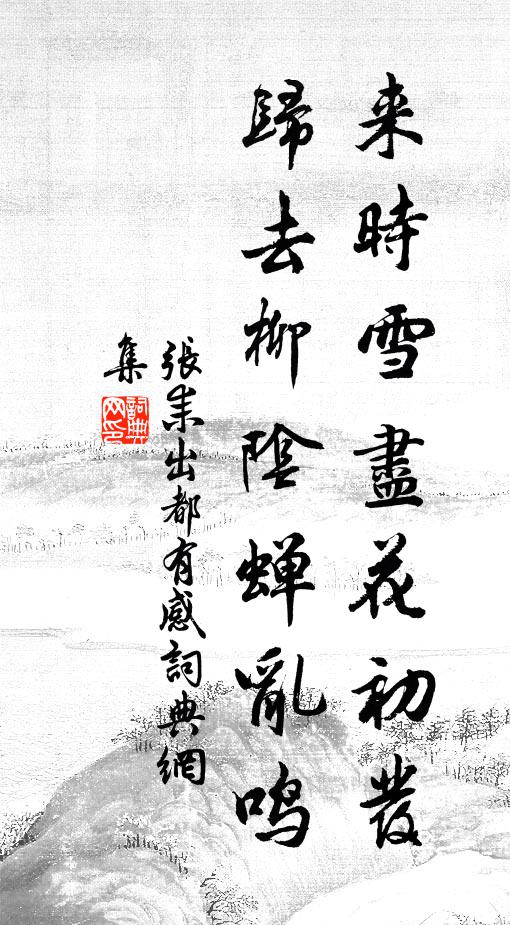 来時雪盡花初發
歸去柳陰蟬亂鳴
張耒出都有感詞典網
集
詞典
网印